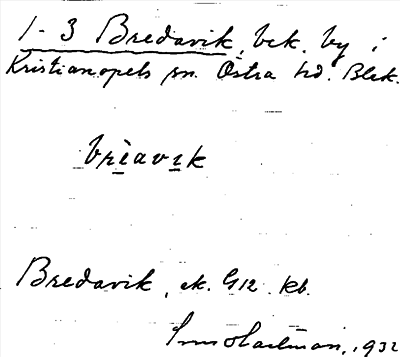 1-3 Bredavik, bek. by i
Kristianopels sn. Östra hd. Blek.
brèavɪk
Bredavik, ek. G12. kb.
1932